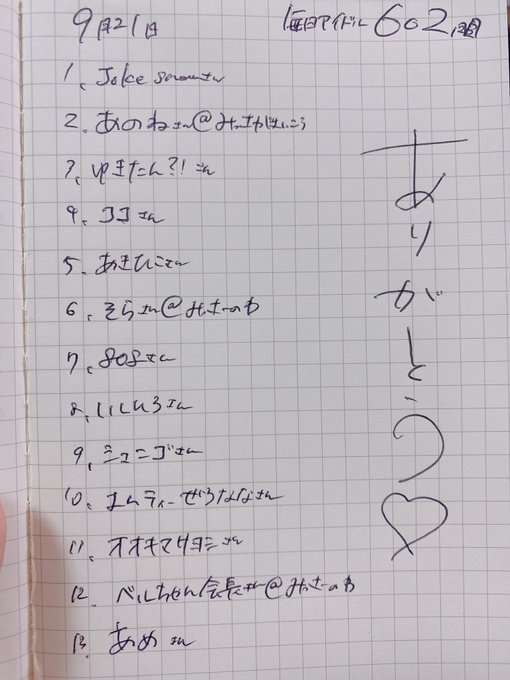 9月21日
毎日アイドル602日目
1、Joke さん
2、あのねさん@みっさ
3、ゆきたん?!さん
4、ココさん
5、あきひこさん
6、そらさん@みっさーのわ
7、808さん
8、いしいろさん
9、シュニゴさん
10、エムティーぜろななさん
11、オオキマサヨシさん
12、べルちゃん会長さん@みっさーのわ
13、あめさん
ありがとう♡